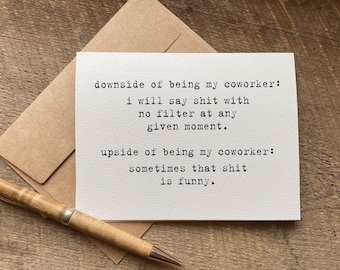 downside of being my coworker:
i will say shit with
no filter at any
given moment.
upside of being my coworker:
sometimes that shit
is funny.